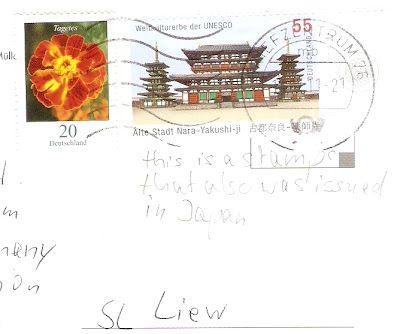 Tagetes
20
Deutschland
Weltkulturerbe der UNESCO
55
DEUTSCHLAND
Alte Stadt Nara-Yakushi-ji
古都奈良-薬師寺
FZENTRUM 76
21
this is a stamps
that also was issued
in Japan
SL Liew